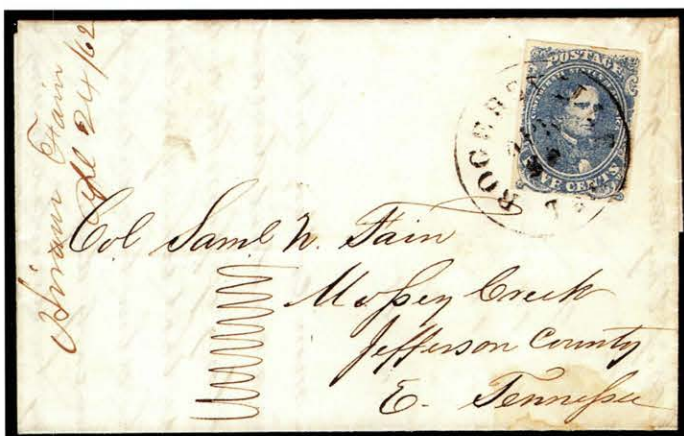 Hiram Fain
Apl 24/62
POSTAGE
FIVE CENTS
ROGERS
Col Saml N. Fain
Mossey Creek
Jefferson County
E. Tennessee